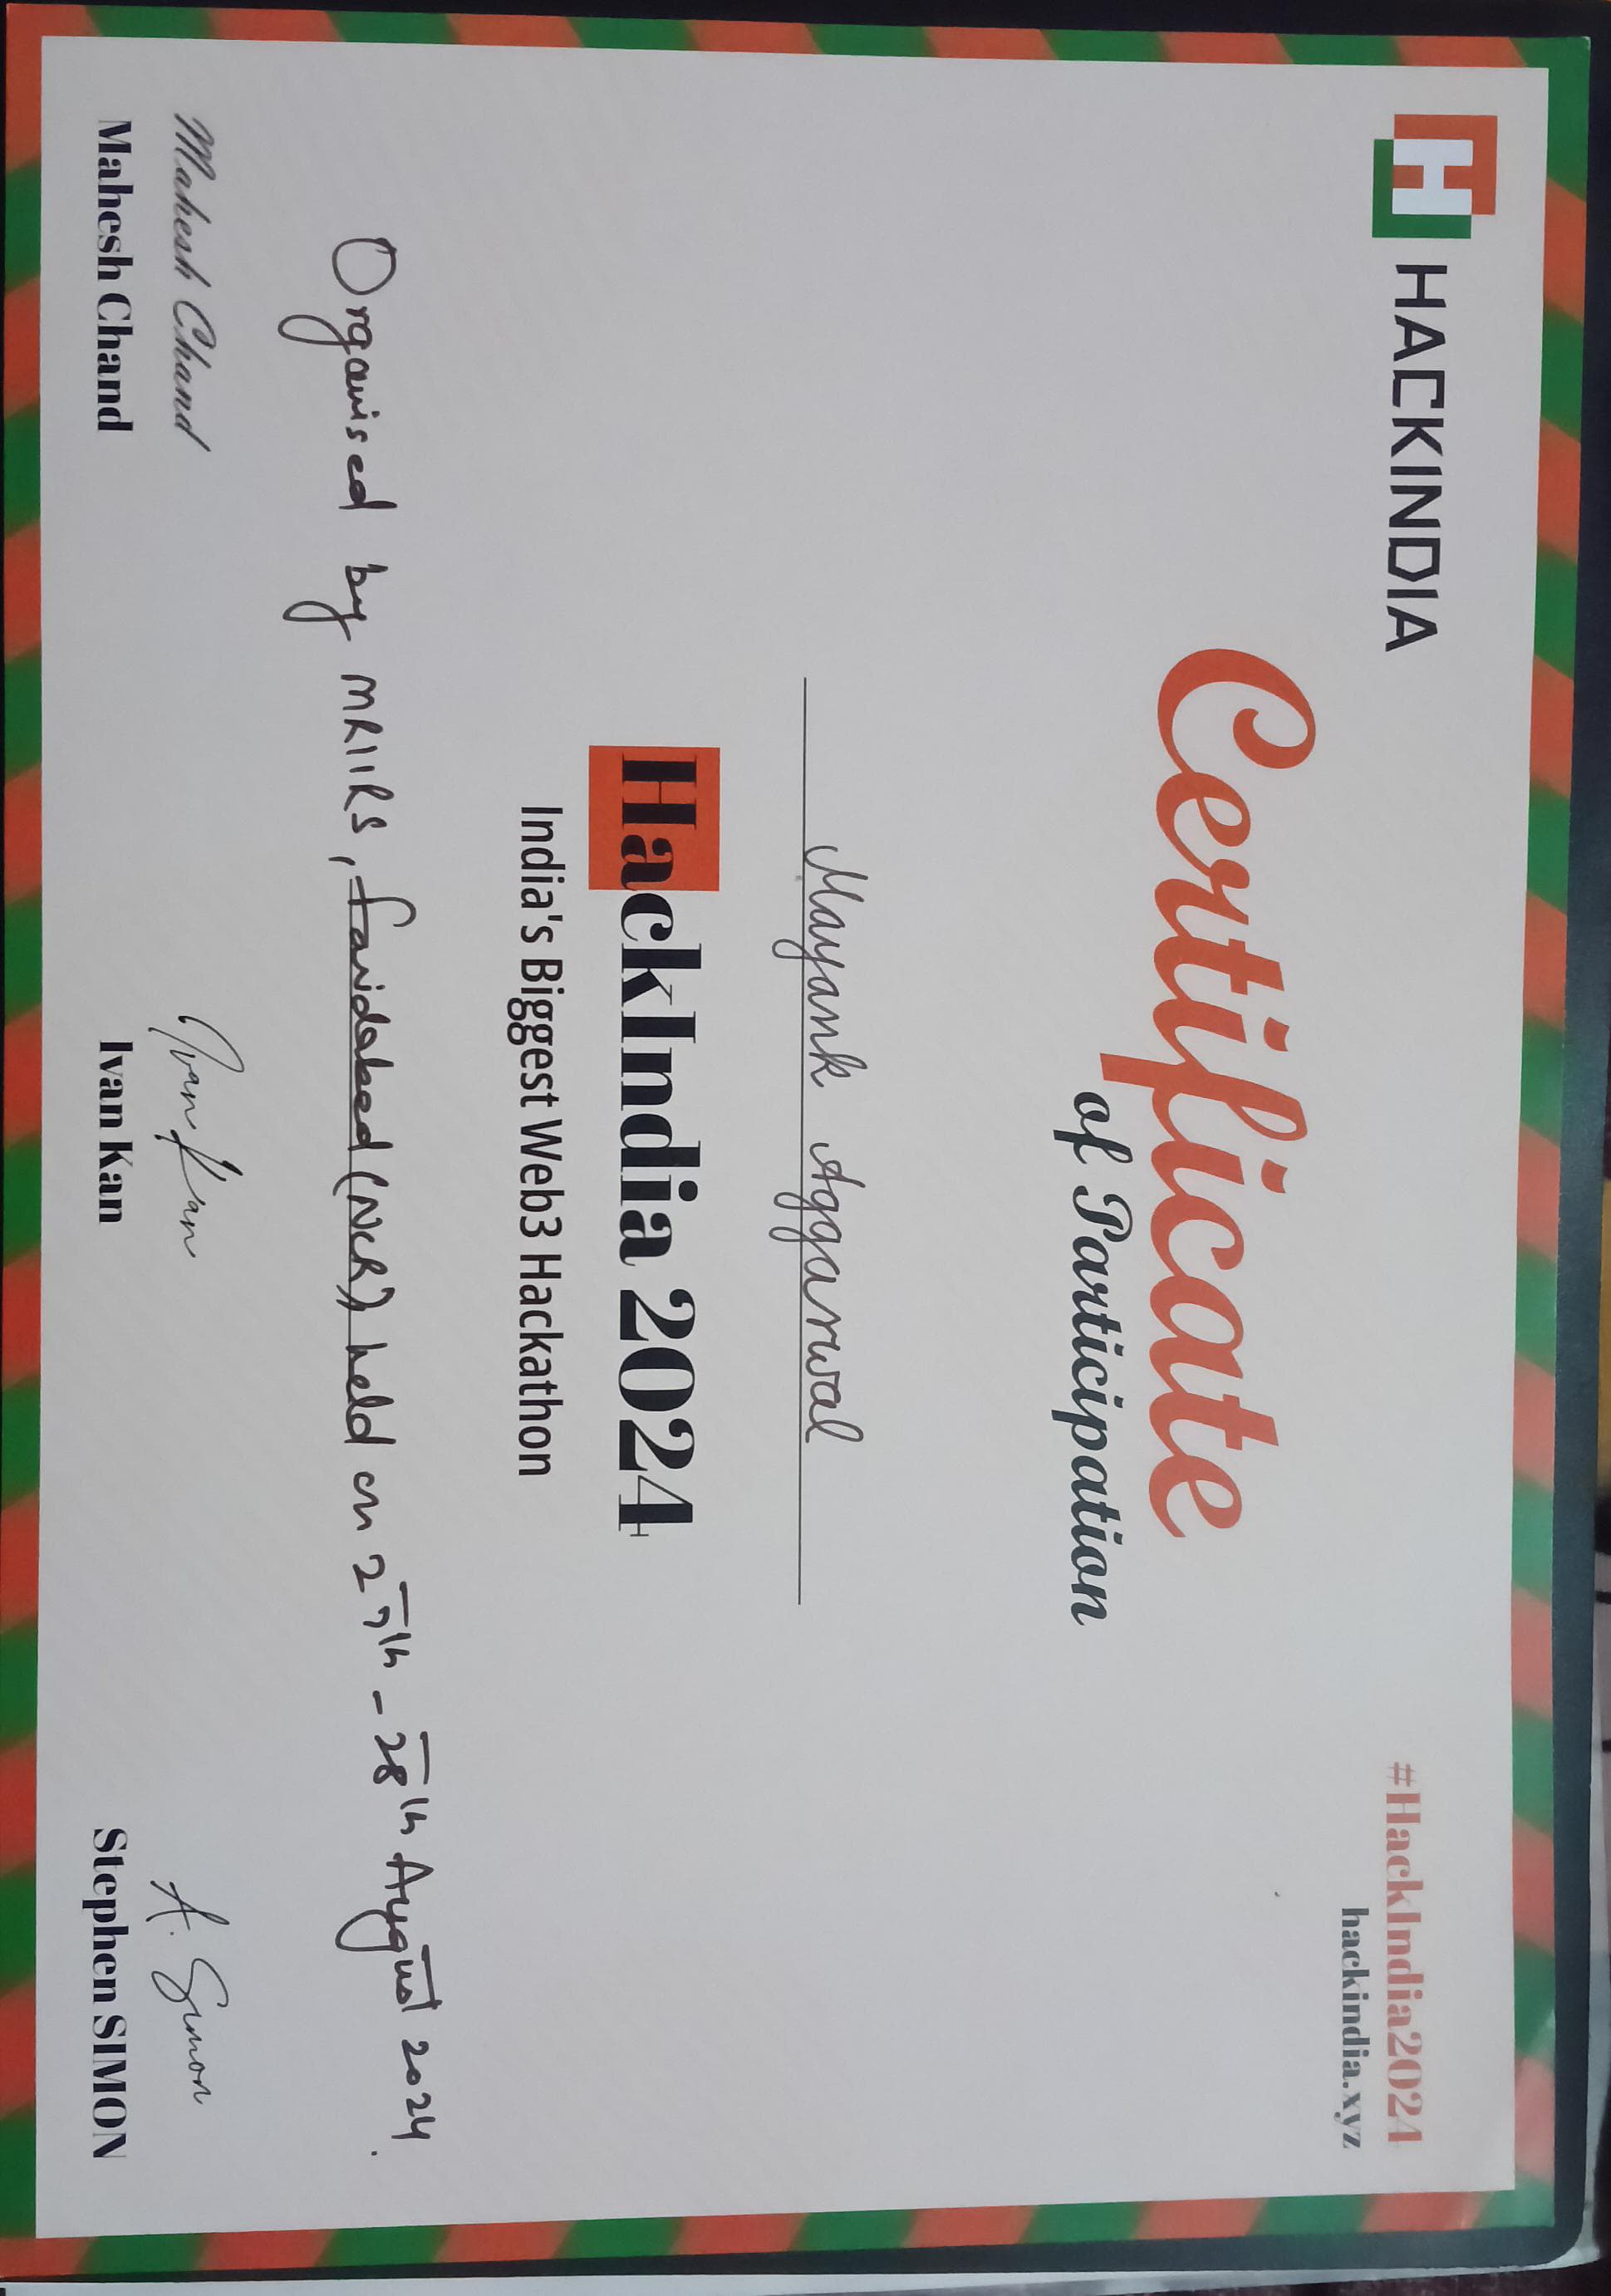 HACKINDIA
#HackIndia2024
hackindia.xyz
Certificate
of Participation
Mayank Aggarwal
HackIndia 2024
India's Biggest Web3 Hackathon
Organised by MRIIRS, Faridabad (NCR), held on 27th - 28th August 2024.
Mahesh Chand
Ivan Kan
A. Simon
Mahesh Chand
Ivan Kan
Stephen SIMON